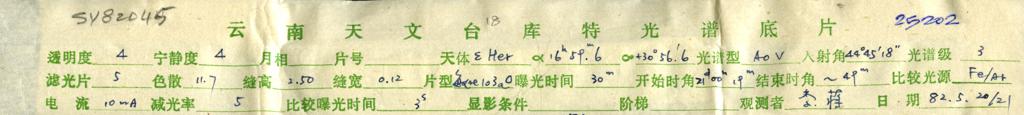 SY82045
云南天文台库特光谱底片 18 25202
透明度 4 宁静度 4 月相 片号 天体 ε Her α 16ʰ59.ᵐ6 +30°56.′6 光谱型 A0V 入射角 44°45′18″ 光谱级 3
滤光片 5 色散 11.7 缝高 2.50 缝宽 0.12 片型 103aO 曝光时间 30ᵐ 开始时角 19ᵐ 结束时角 ~49ᵐ 比较光源 Fe/Ar
电流 10mA 减光率 5 比较曝光时间 3ˢ 显影条件 阶梯 观测者 李 蒋 日期 82.5.20/21